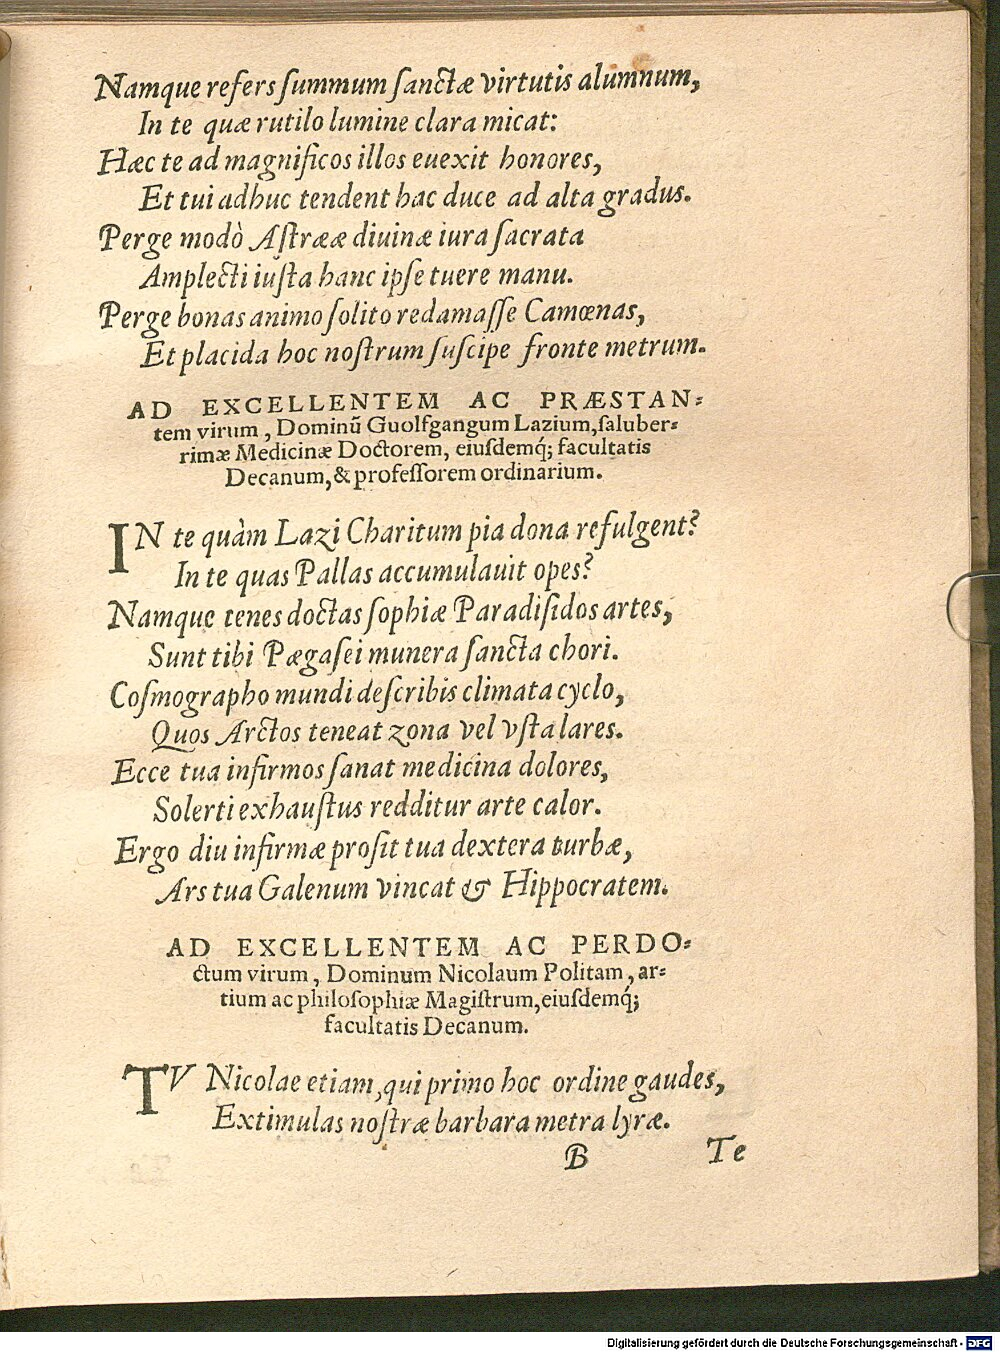 Namque refers ſummum ſanctæ virtutis alumnum,
In te quæ rutilo lumine clara micat:
Hæc te ad magnificos illos euexit honores,
Et tui adhuc tendent hac duce ad alta gradus.
Perge modò Aſtrææ diuinæ iura ſacrata
Amplecti iuſta hanc ipſe tuere manu.
Perge bonas animo ſolito redamaſſe Camœnas,
Et placida hoc noſtrum ſuſcipe fronte metrum.
AD EXCELLENTEM AC PRÆSTAN⸗
tem virum, Dominũ Guolfgangum Lazium, ſaluber⸗
rimæ Medicinæ Doctorem, eiuſdemq́; facultatis
Decanum, & profeſſorem ordinarium.
IN te quàm Lazi Charitum pia dona refulgent?
In te quas Pallas accumulauit opes?
Namque tenes doctas ſophiæ Paradiſidos artes,
Sunt tibi Pægaſei munera ſancta chori.
Coſmographo mundi deſcribis climata cyclo,
Quos Arctos teneat zona vel vſta lares.
Ecce tua infirmos ſanat medicina dolores,
Solerti exhauſtus redditur arte calor.
Ergo diu infirmæ proſit tua dextera turbæ,
Ars tua Galenum vincat & Hippocratem.
AD EXCELLENTEM AC PERDO⸗
ctum virum, Dominum Nicolaum Politam, ar⸗
tium ac philoſophiæ Magiſtrum, eiuſdemq́;
facultatis Decanum.
TV Nicolae etiam, qui primo hoc ordine gaudes,
Extimulas noſtræ barbara metra lyræ.
B Te
Digitalisierung gefördert durch die Deutsche Forschungsgemeinschaft - DFG